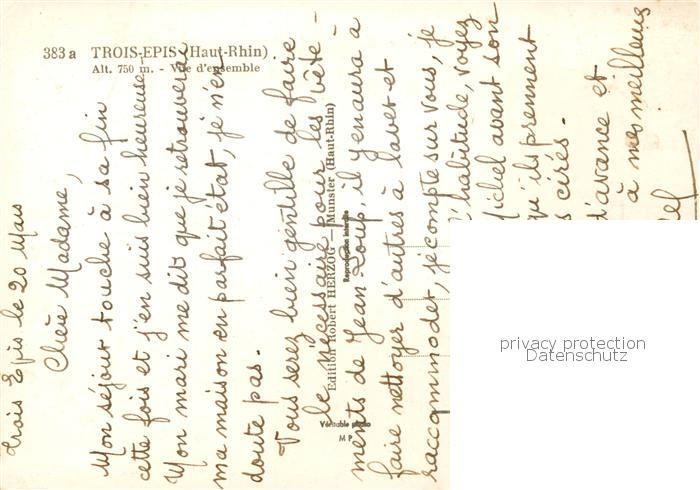 383 a TROIS-EPIS (Haut-Rhin)
Alt. 750 m. - Vue d'ensemble
Edition Robert HERZOG - Munster (Haut-Rhin)
Reproduction interdite
Véritable photo
M P
Trois Epis le 20 Mars
Chère Madame,
Mon séjour touche à sa fin
cette fois et j'en suis bien heureuse-
Mon mari me dit que je retrouverai
ma maison en parfait état, je n'en
doute pas.
Vous serez bien gentille de faire
le nécessaire pour les vête-
ments de Jean-Loup, il y en aura à
faire nettoyer d'autres à laver et
raccommoder, je compte sur vous, je
d'habitude, voyez
Michel avant son
qu'ils prennent
cirés.
d'avance et
à mes meilleurs
privacy protection
Datenschutz